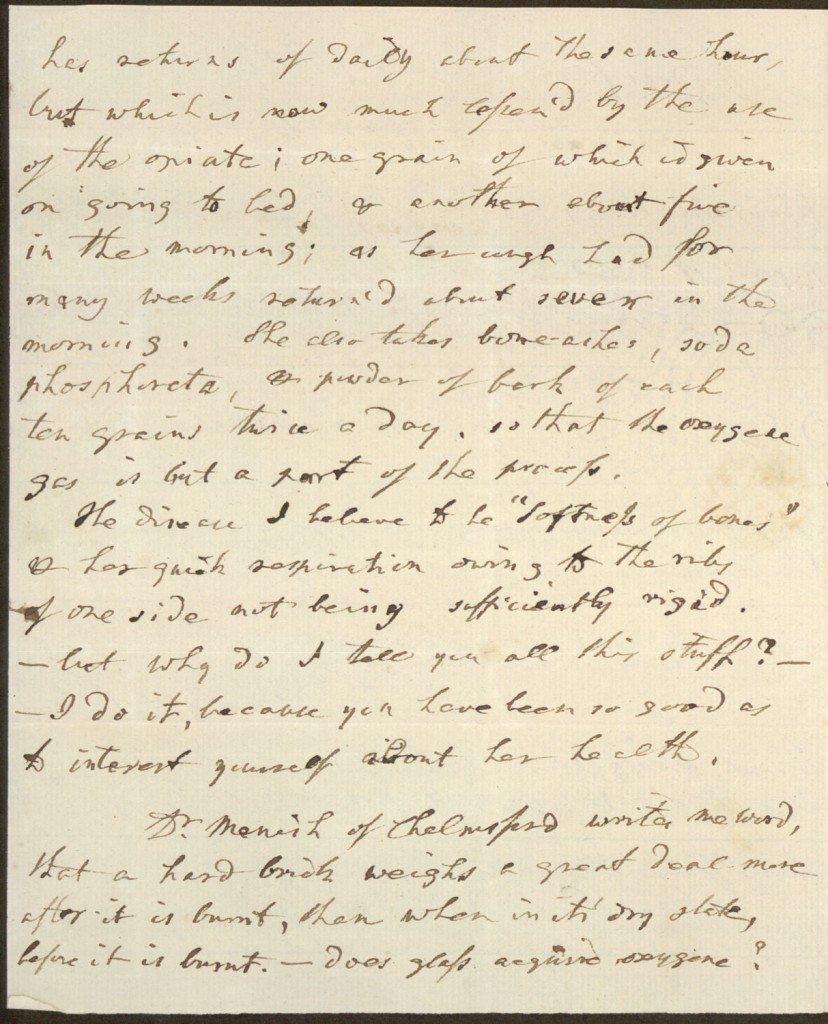 has returns of daily about the same hour,
but which is now much lessen'd by the use
of the opiate; one grain of which is given
on going to bed, & another about five
in the morning; as her cough had for
many weeks return'd about seven in the
morning. She also takes bone-ashes, soda
phosphoreta, & powder of bark of each
ten grains twice a day. so that the oxygene
gas is but a part of the process.
The disease I believe to be "softness of bones"
& her quick respiration owing to the ribs
of one side not being sufficiently rigid.
— but why do I tell you all this stuff? —
— I do it, because you have been so good as
to interest yourself about her health.
Dr. Menish of Chelmsford writes me word,
that a hard brick weighs a great deal more
after it is burnt, than when in it's dry state,
before it is burnt. — does glass acquire oxygene?